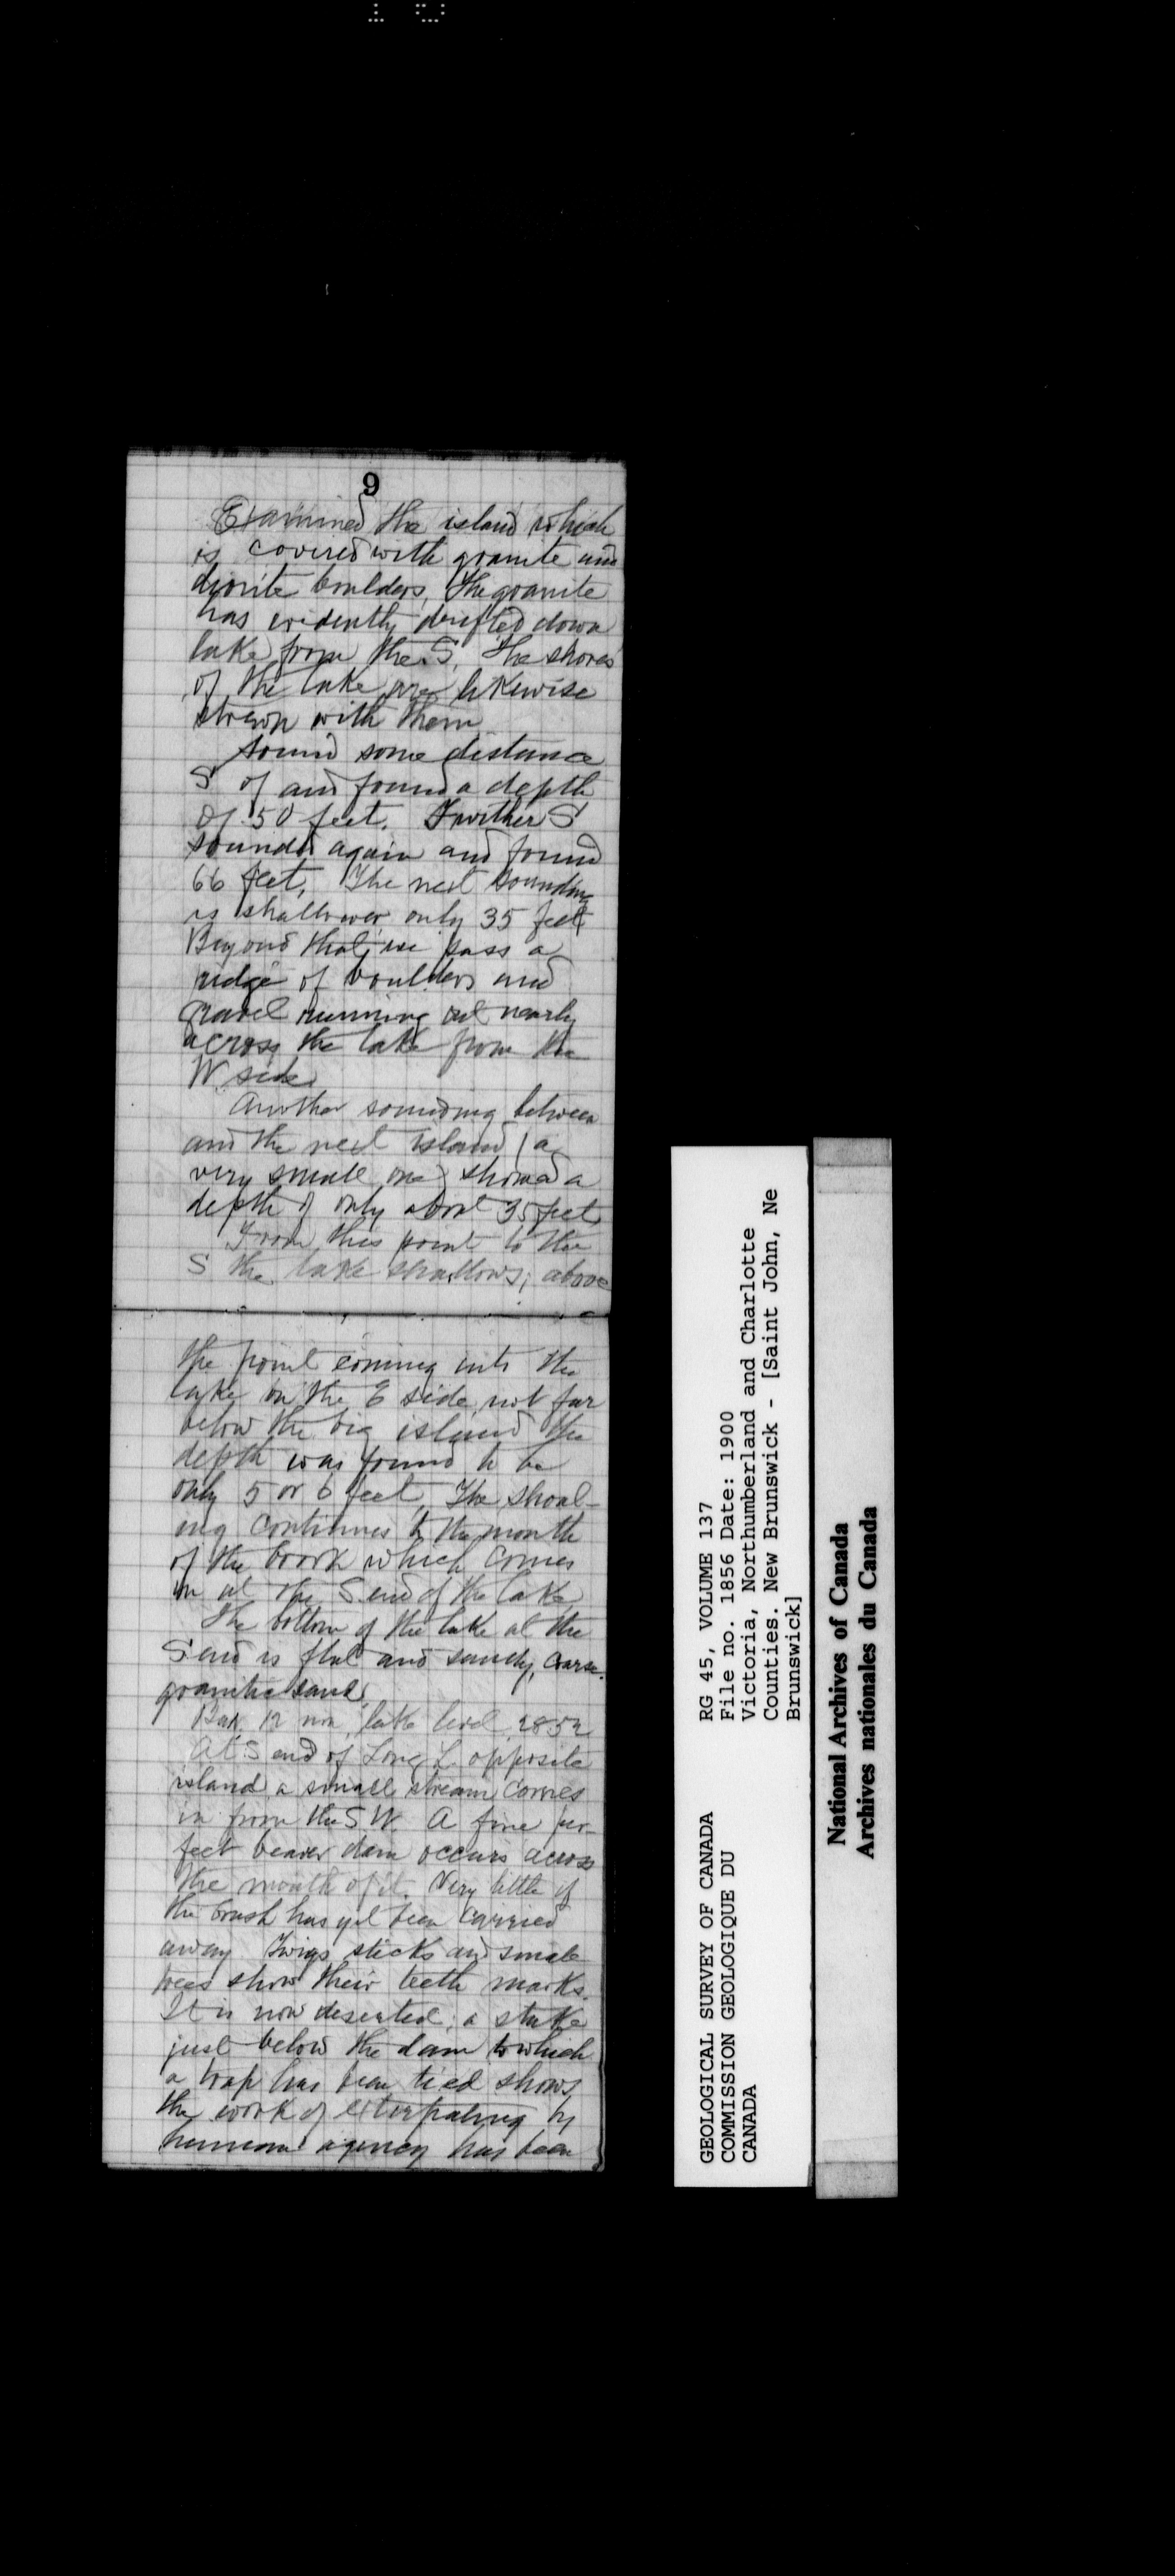 9
Examined the island which
is covered with granite and
diorite boulders, The granite
has evidently drifted down
lake from the S. The shores
of the lake are likewise
strewn with them
Sound some distance
S of and found a depth
of 50 feet. Further S
sounded again and found
66 feet. The next sounding
is shallower only 35 feet
Beyond that we pass a
ridge of boulders and
gravel running out nearly
across the lake from the
W side
Another sounding between
and the next island (a
very small one) showed a
depth of only about 35 feet
From this point to the
S the lake shallows; above
the point coming into the
lake on the E side not far
below the big island the
depth was found to be
only 5 or 6 feet. The shoal-
ing continues to the mouth
of the brook which comes
in at the S end of the lake
The bottom of the lake at the
S end is flat and sandy, coarse
granitic sand.
Bar. 12 noon, lake level, 2852
At S end of Long L. opposite
island a small stream comes
in from the S.W. A fine per-
fect beaver dam occurs across
the mouth of it. Very little of
the brush has yet been carried
away. Twigs sticks and small
trees show their teeth marks.
It is now deserted; a stake
just below the dam to which
a trap has been tied shows
the work of extirpating by
human agency has been
GEOLOGICAL SURVEY OF CANADA
COMMISSION GEOLOGIQUE DU
CANADA
RG 45, VOLUME 137
File no. 1856 Date: 1900
Victoria, Northumberland and Charlotte
Counties. New Brunswick - [Saint John, Ne
Brunswick]
National Archives of Canada
Archives nationales du Canada